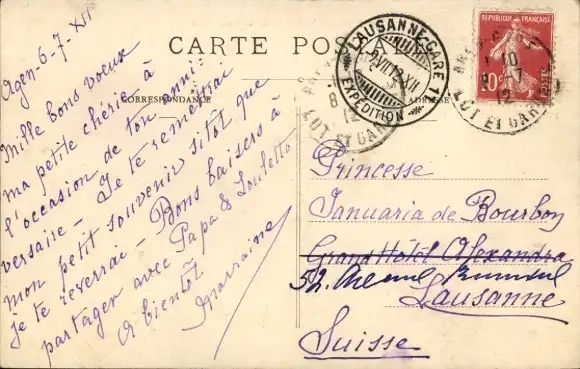 Agen - 6-7- XII
CARTE POSTALE
CORRESPONDANCE
ADRESSE
Mille bons voeux
ma petite chérie à
l'occasion de ton anni-
versaire - Je te remettrai
mon petit souvenir sitôt que
je te reverrai - Bons baisers à
partager avec Papa & Louletto
A bientôt
Marraine
LAUSANNE-GARE 1
VII.12-XII
EXPEDITION
LOT ET GAR
8
12
REPUBLIQUE FRANÇAISE
10c
POSTES
AGEN-GARE
10
8 -7
12
LOT ET GAR
Princesse
Januaria de Bourbon
Grand Hôtel Alexandra
52, Avenue
Lausanne
Suisse